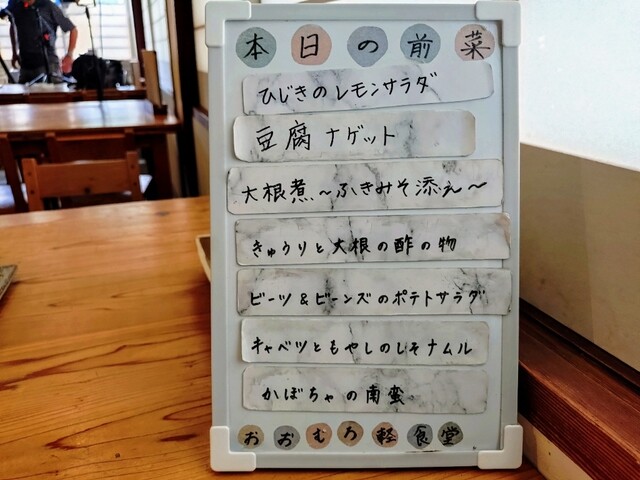 本日の前菜
ひじきのレモンサラダ
豆腐ナゲット
大根煮~ふきみそ添え~
きゅうりと大根の酢の物
ビーツ&ビーンズのポテトサラダ
キャベツともやしのしそナムル
かぼちゃの南蛮。
おおむろ軽食堂